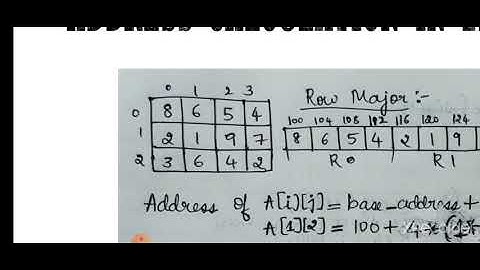 0 1 2 3
0 8 6 5 4
1 2 1 9 7
2 3 6 4 2
Row Major :-
100 104 108 112 116 120 124
8 6 5 4 2 1 9
R0 R1
Address of A[i][j] = base_address +
A[1][2] = 100 + 4 * (1*